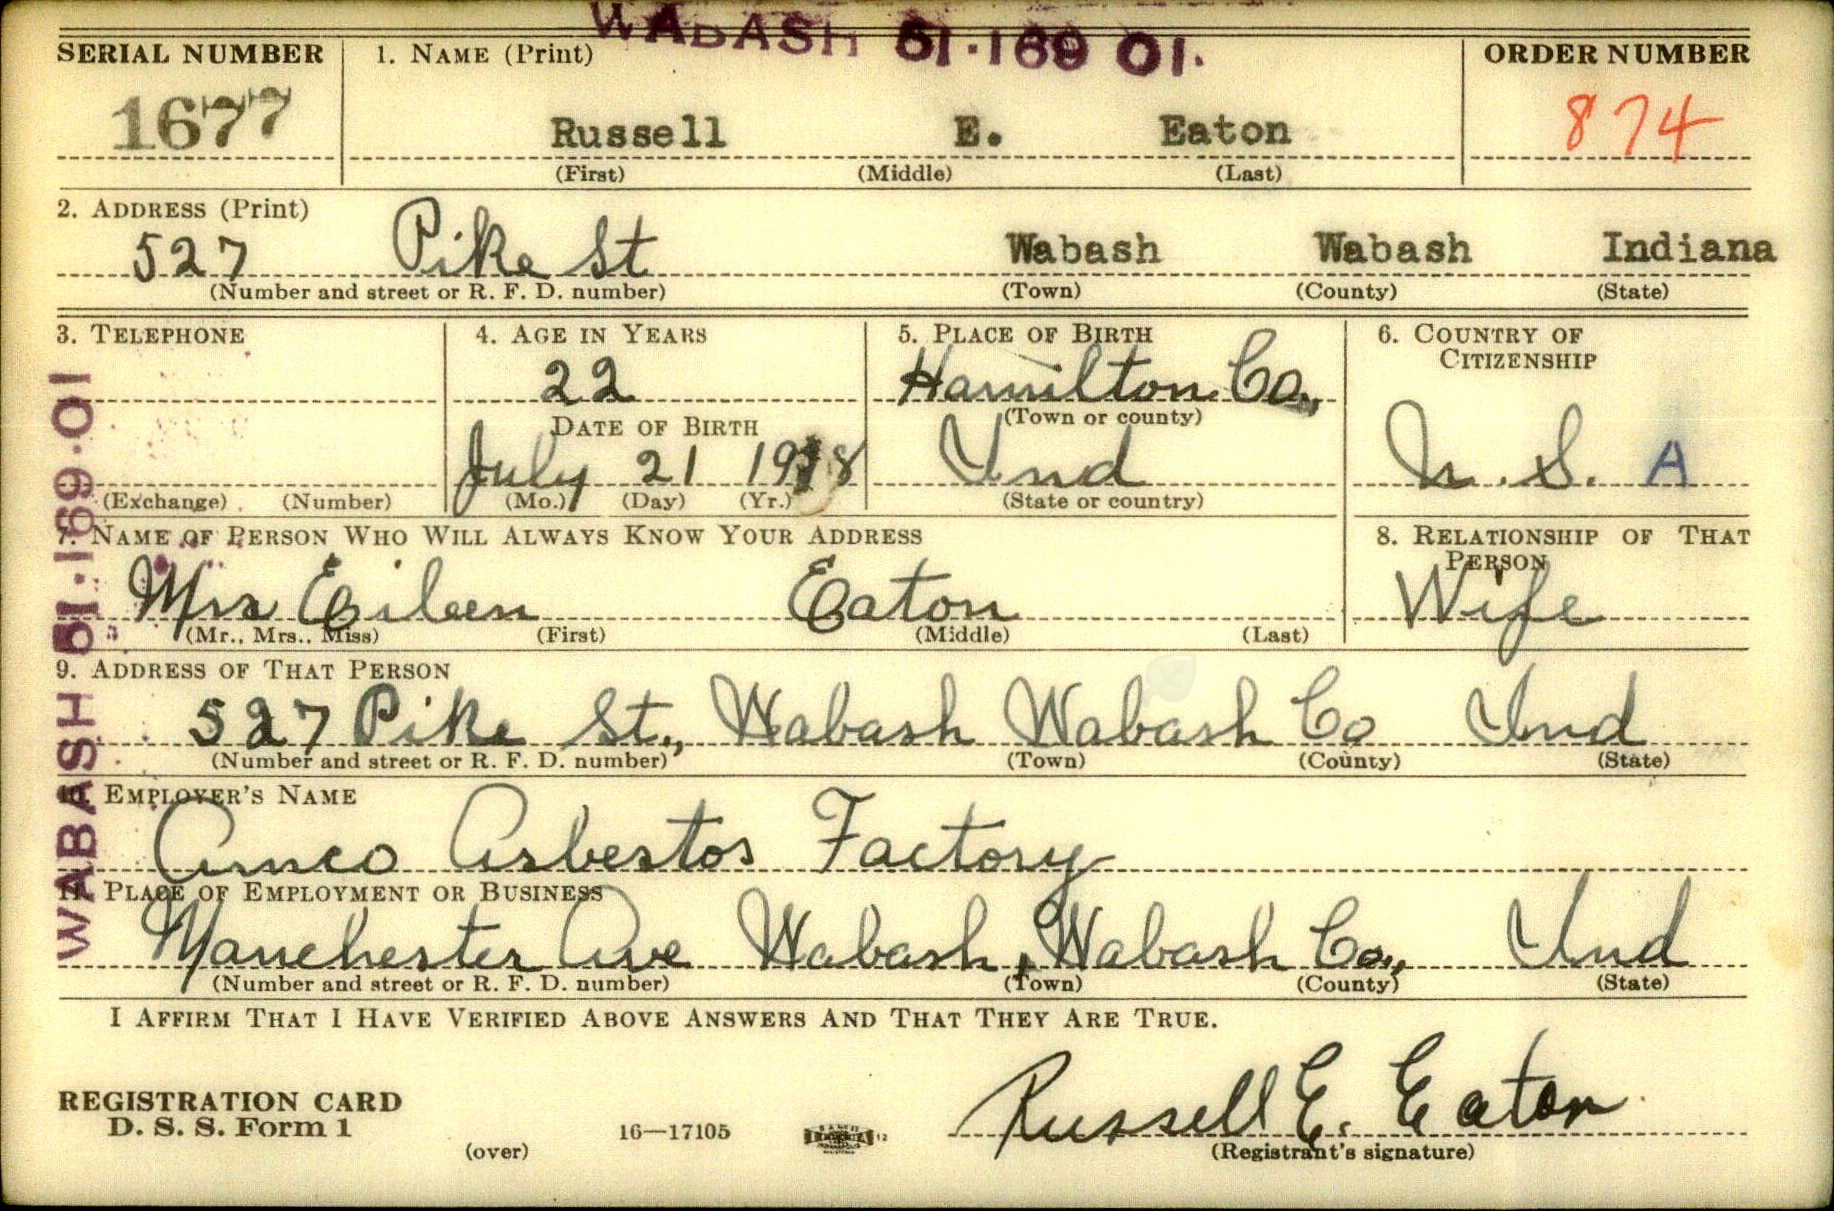 WABASH 51·169 01.
SERIAL NUMBER
1677
1. NAME (Print)
Russell E. Eaton
(First) (Middle) (Last)
ORDER NUMBER
874
2. ADDRESS (Print)
527 Pike St Wabash Wabash Indiana
(Number and street or R. F. D. number) (Town) (County) (State)
3. TELEPHONE
(Exchange) (Number)
4. AGE IN YEARS
22
DATE OF BIRTH
July 21 1918
(Mo.) (Day) (Yr.)
5. PLACE OF BIRTH
Hamilton Co.,
(Town or county)
Ind
(State or country)
6. COUNTRY OF
CITIZENSHIP
U. S. A
7. NAME OF PERSON WHO WILL ALWAYS KNOW YOUR ADDRESS
Mrs Eileen Eaton
(Mr., Mrs., Miss) (First) (Middle) (Last)
8. RELATIONSHIP OF THAT
PERSON
Wife
9. ADDRESS OF THAT PERSON
527 Pike St., Wabash Wabash Co Ind
(Number and street or R. F. D. number) (Town) (County) (State)
10. EMPLOYER'S NAME
Amco Asbestos Factory
11. PLACE OF EMPLOYMENT OR BUSINESS
Manchester Ave Wabash, Wabash Co., Ind
(Number and street or R. F. D. number) (Town) (County) (State)
I AFFIRM THAT I HAVE VERIFIED ABOVE ANSWERS AND THAT THEY ARE TRUE.
Russell E. Eaton
(Registrant's signature)
REGISTRATION CARD
D. S. S. Form 1
(over)
16—17105
12
WABASH 51·169·01